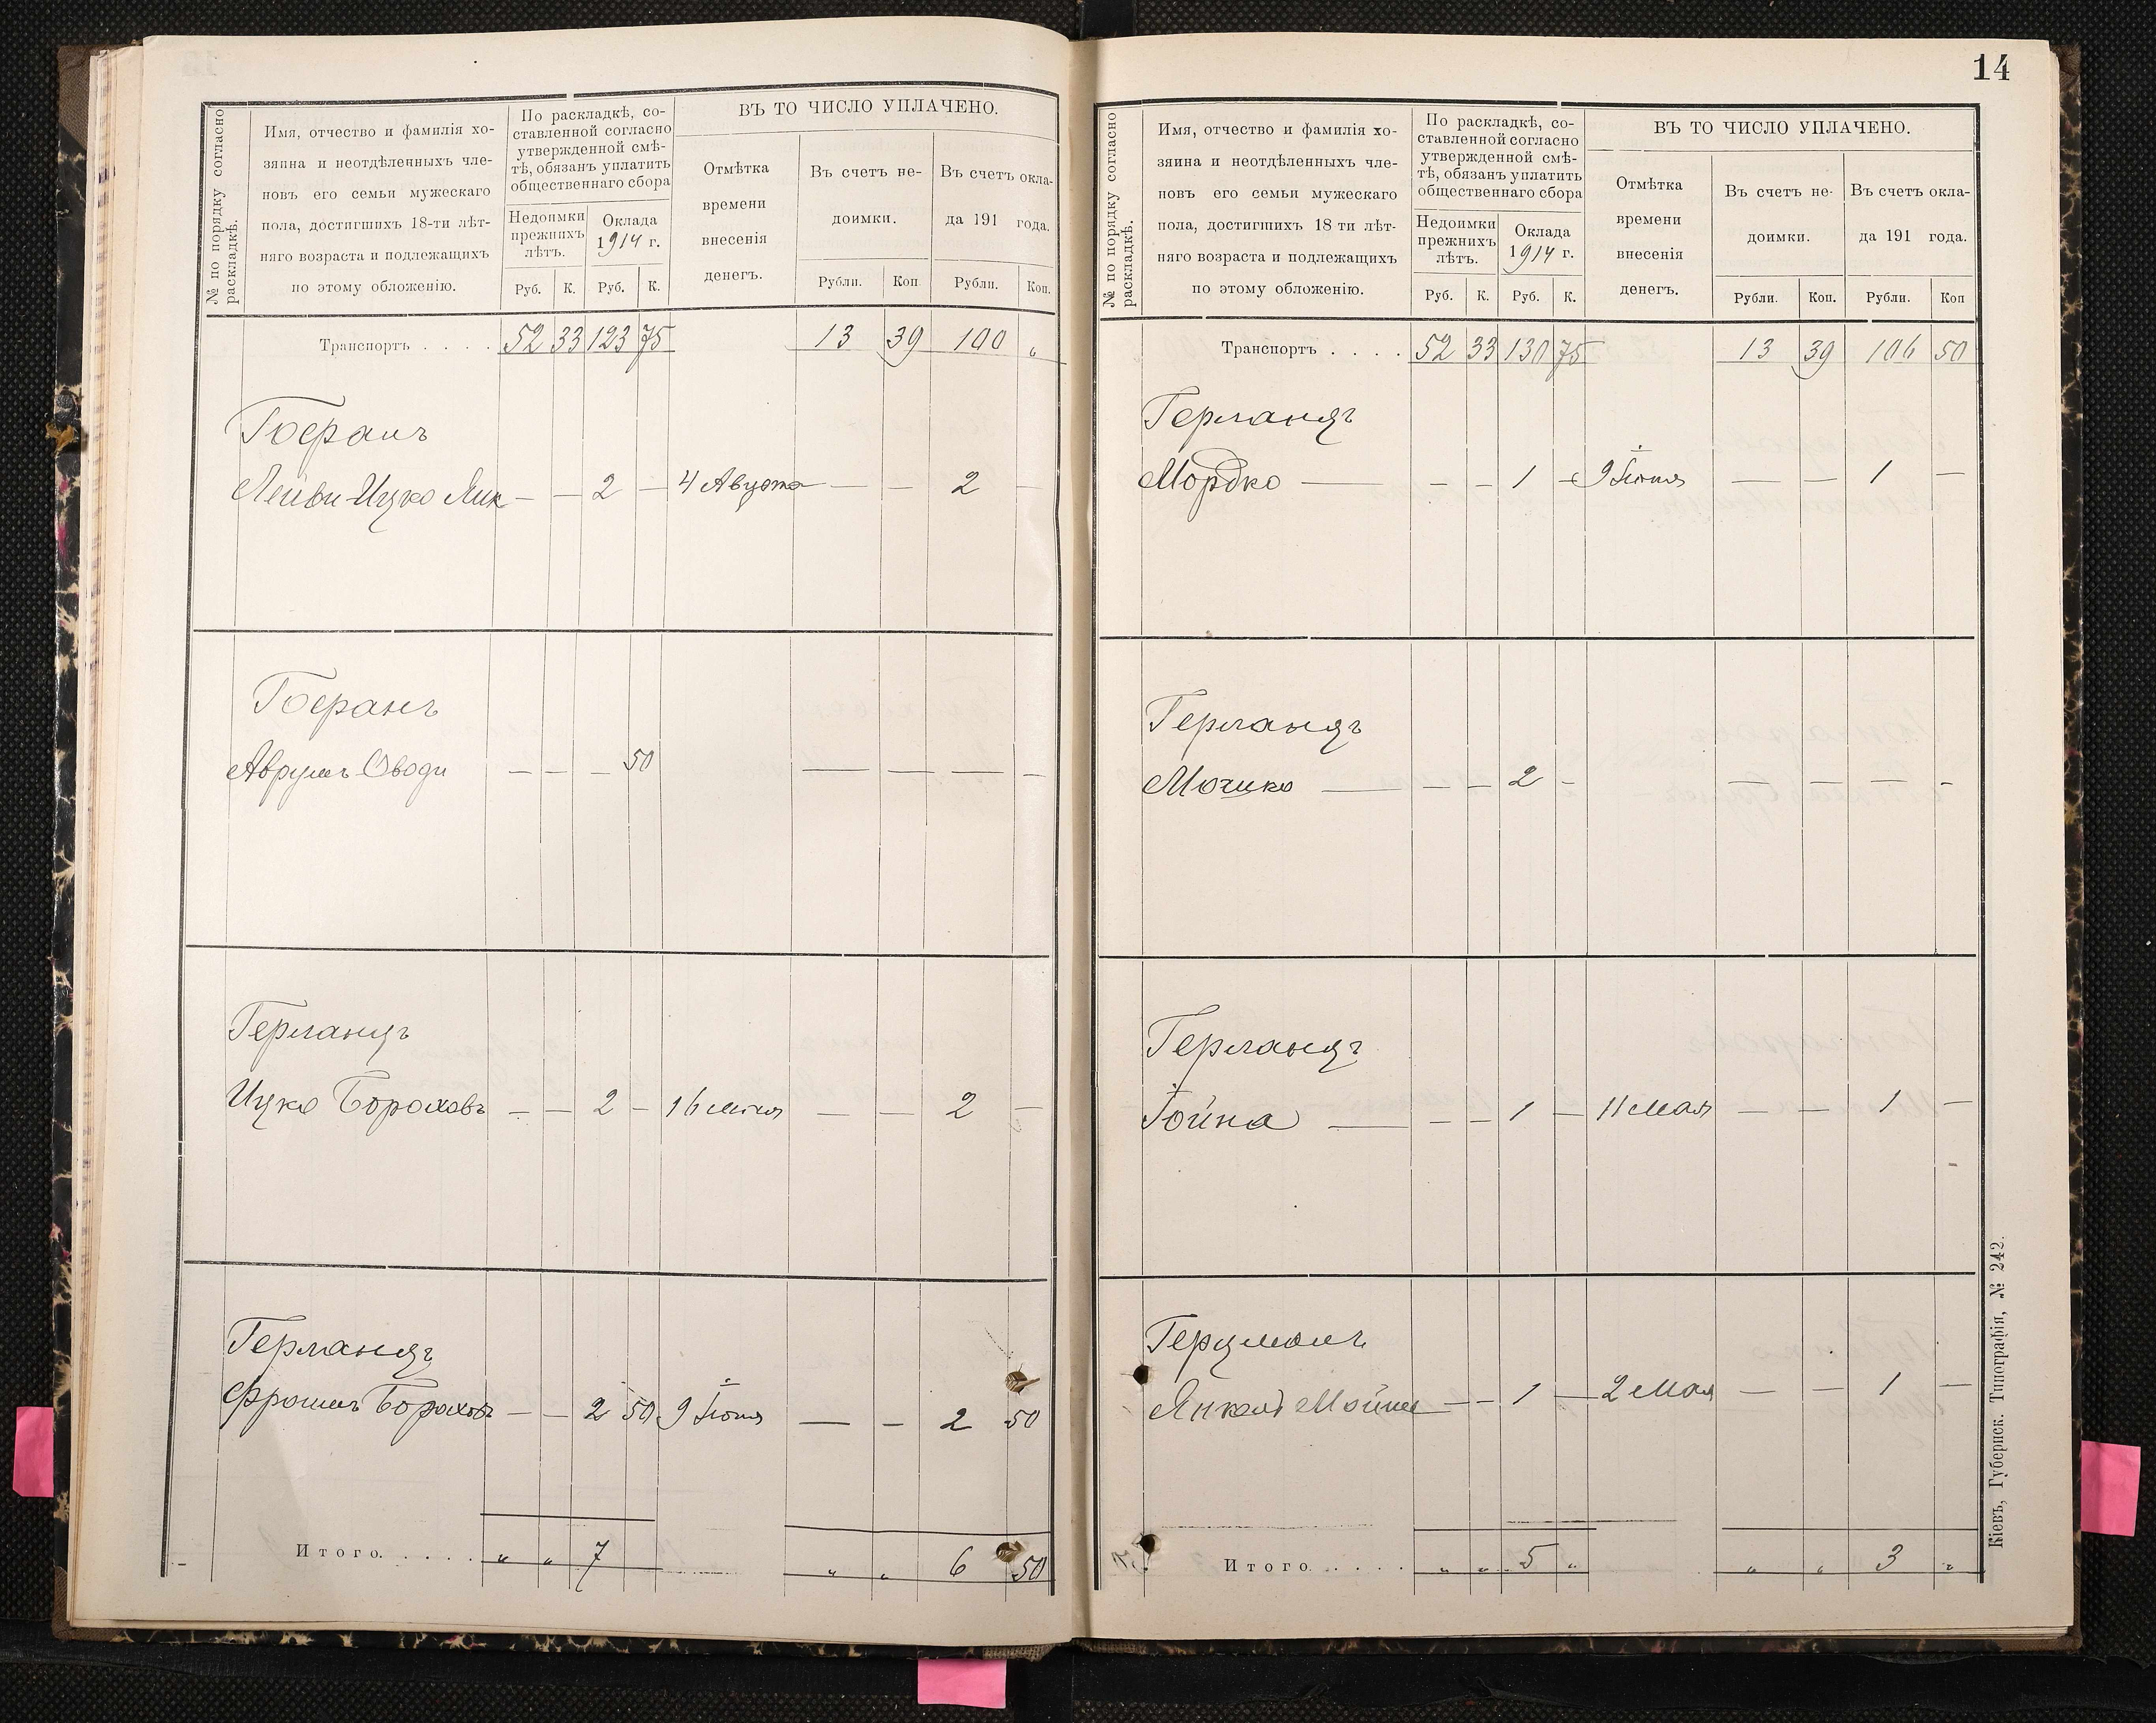 № по порядку согласно
раскладкѣ.
Имя, отчество и фамилія хо-
зяина и неотдѣленныхъ чле-
новъ его семьи мужескаго
пола, достигшихъ 18-ти лѣт-
няго возраста и подлежащихъ
по этому обложенію.
По раскладкѣ, со-
ставленной согласно
утвержденной смѣ-
тѣ, обязанъ уплатить
общественнаго сбора
Недоимки
прежнихъ
лѣтъ.
Оклада
1914 г.
Руб. К. Руб. К.
ВЪ ТО ЧИСЛО УПЛАЧЕНО.
Отмѣтка
времени
внесенія
денегъ.
Въ счетъ не-
доимки.
Въ счетъ окла-
да 191 года.
Рубли. Коп Рубли. Коп.
Транспортъ . . . . 52 33 123 75 13 39 100 "
Гофранъ
Лейви-Ицко — — 2 — 4 Августа — — 2 —
Гофранъ
Аврумъ — — — 50 — — — —
Германъ
Ицко Бороховъ — — 2 — 16 — — 2 —
Германъ
Бороховъ — — 2 50 9 Іюня — — 2 50
Итого. . . . . " " 7 " " 6 50
14
№ по порядку согласно
раскладкѣ.
Имя, отчество и фамилія хо-
зяина и неотдѣленныхъ чле-
новъ его семьи мужескаго
пола, достигшихъ 18 ти лѣт-
няго возраста и подлежащихъ
по этому обложенію.
По раскладкѣ, со-
ставленной согласно
утвержденной смѣ-
тѣ, обязанъ уплатить
общественнаго сбора
Недоимки
прежнихъ
лѣтъ.
Оклада
1914 г.
Руб. К. Руб. К.
ВЪ ТО ЧИСЛО УПЛАЧЕНО.
Отмѣтка
времени
внесенія
денегъ.
Въ счетъ не-
доимки.
Въ счетъ окла-
да 191 года.
Рубли. Коп. Рубли. Коп
Транспортъ . . . . 52 33 130 75 13 39 106 50
Мордко — — — 1 — 9 Іюня — — 1 —
Мошко — — — 2 — — — — —
Іойна — — — 1 — 11 Мая — — 1 —
Герцманъ
Янкель Мойше — — 1 — 2 Мая — — 1 —
Итого. . . . . " " 5 " " " 3 "
Кіевъ, Губернск. Типографія, № 242.